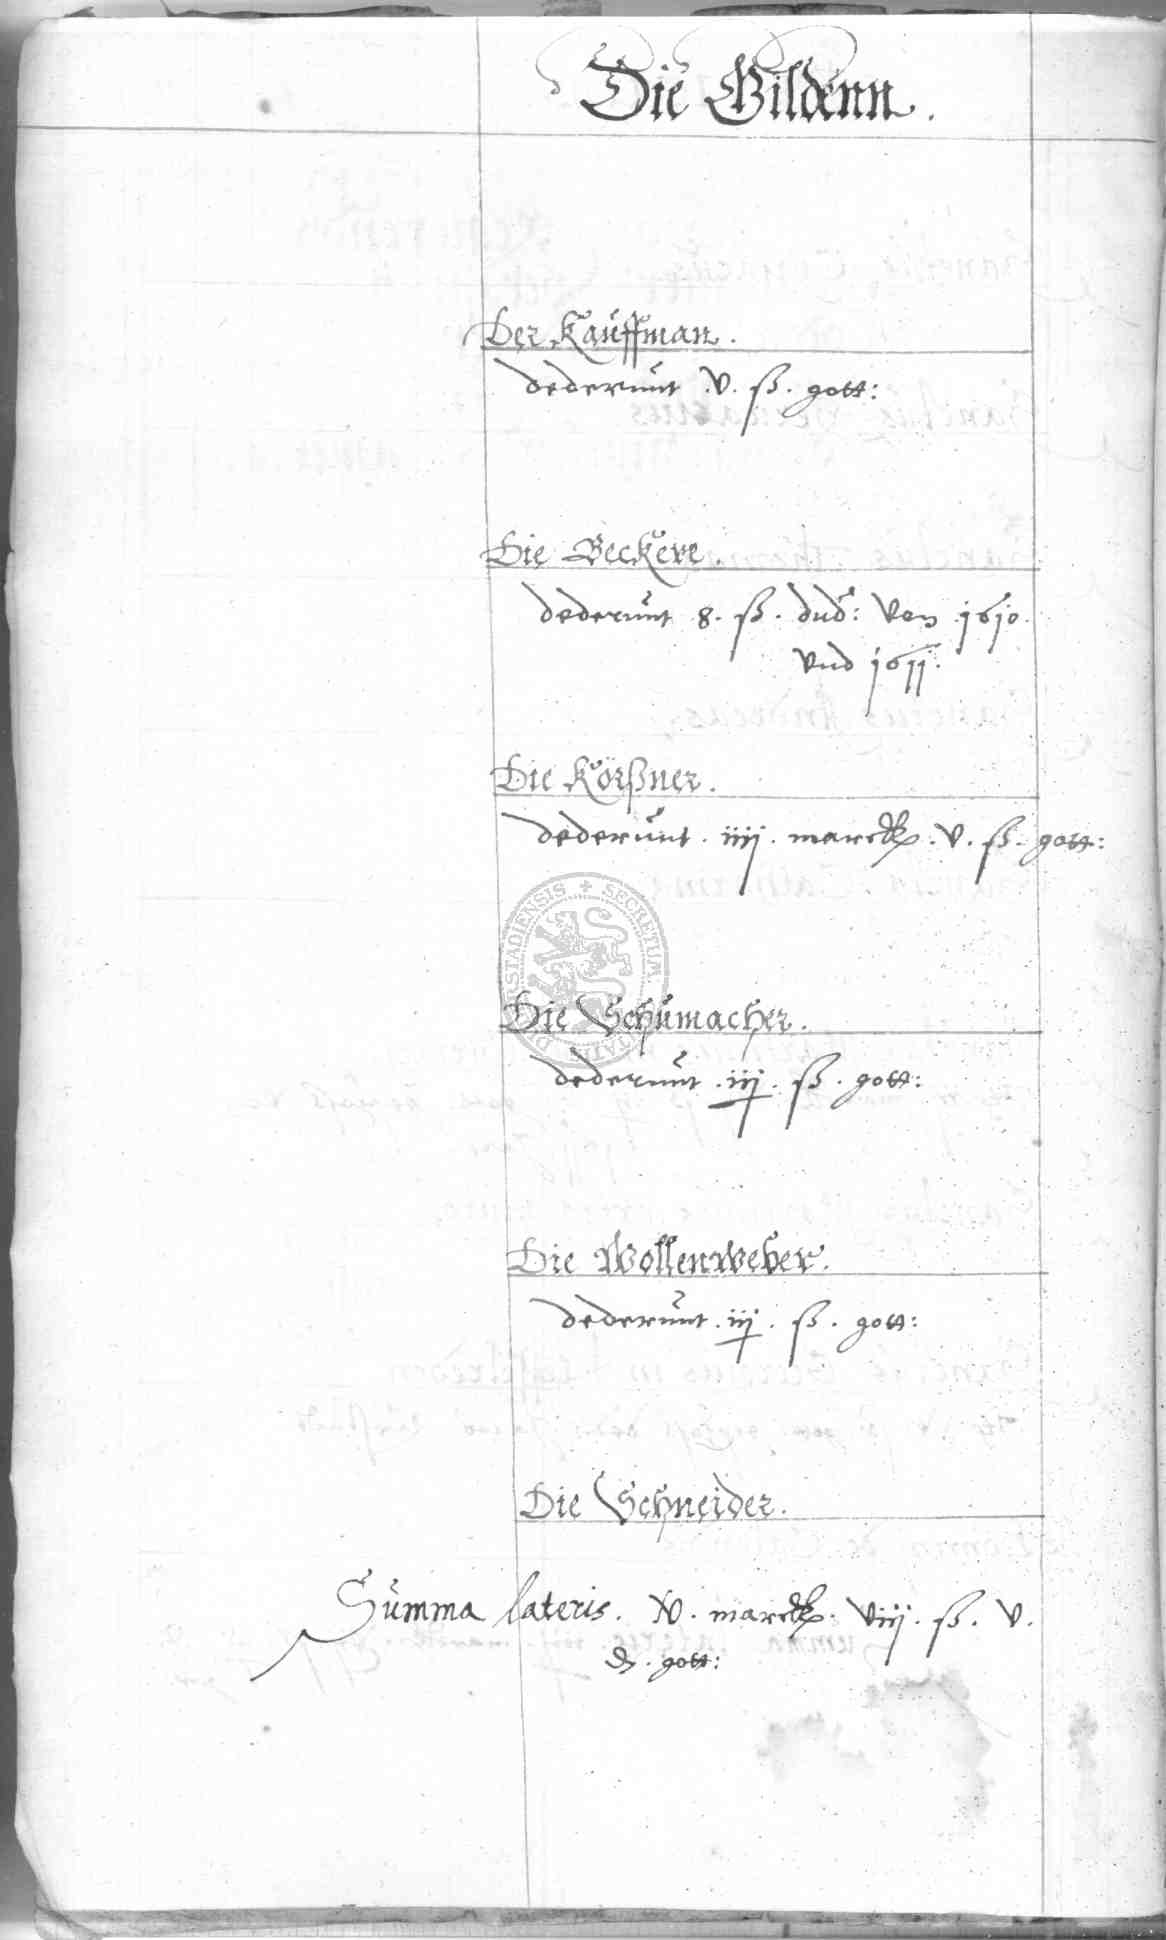 Die Gildenn.
Der Kauffman.
dederunt .v. ß. gott:
Die Beckere.
dederunt 8. ß. dud: von 1610.
vnd 1611.
Die Körßner.
dederunt . iiij . marck . v . ß . gott:
Die Schumacher.
dederunt . iij . ß . gott:
Die Wollenweber.
dederunt . iij . ß . gott:
Die Schneider.
Summa lateris. iv . marck . viij . ß . v .
₰ . gott:
SECRETUM